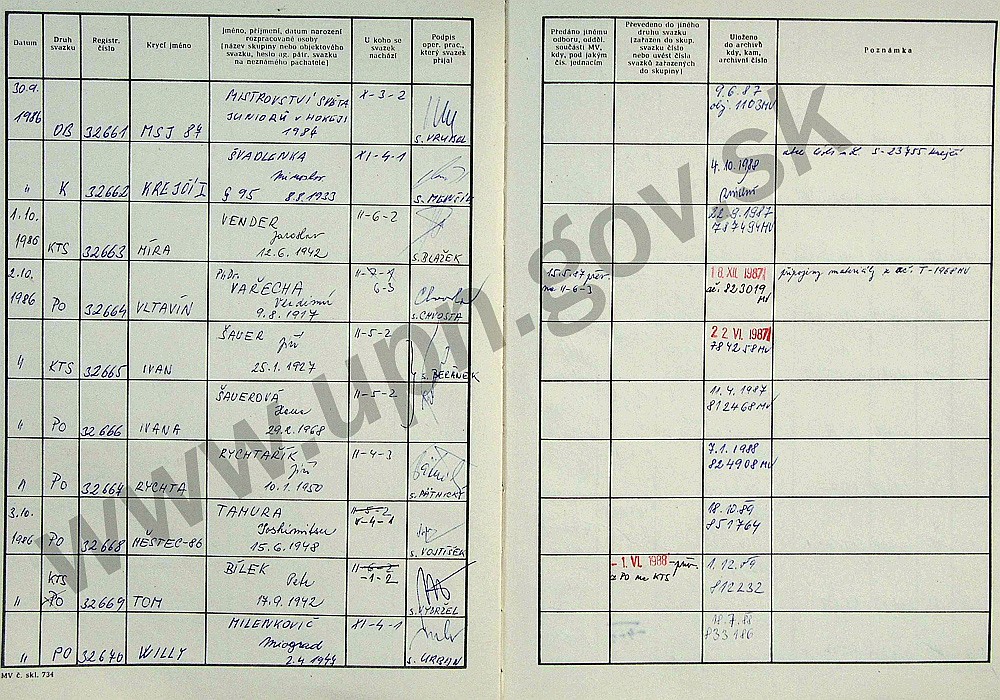 Datum
Druh svazku
Registr. číslo
Krycí jméno
Jméno, příjmení, datum narození rozpracované osoby (název skupiny nebo objektového svazku, heslo ag. pátr. svazku na neznámého pachatele)
U koho se svazek nachází
Podpis oper. prac., který svazek přijal
Předáno jinému odboru, odděl. součásti MV, kdy, pod jakým čís. jednacím
Převedeno do jiného druhu svazku (zařazen do skup. svazku číslo nebo uvést číslo svazků zařazených do skupiny)
Uloženo do archivů kdy, kam, archivní číslo
Poznámka
30.9.
1986 OB 32661 MSJ 87
MISTROVSTVÍ SVĚTA
JUNIORŮ V HOKEJI
1987
X-3-2
9.6.87
obj. 1103 MV
" K 32662 KREJČÍ I
ŠVADLENKA
Miroslav
8.8.1933
XI-4-1
4.10.1988
S-23755
1.10.
1986 KTS 32663 MÍRA
VENDER
Jaroslav
12.6.1942
II-6-2
S. BLAŽEK
22.9.1987
787494 MV
2.10.
1986 PO 32664 VLTAVÍN
PhDr.
VAŘECHA
Vladimír
9.8.1917
6-3
S. CHVOSTA
15.5.87 přev.
na II-6-3
18. XII. 1987
ač. 823019
MV
připojeny materiály z ač. T-1968 MV
" KTS 32665 IVAN
ŠAUER
Jiří
25.1.1927
II-5-2
S. BERÁNEK
22. VI. 1987
784258 MV
" PO 32666 IVANA
ŠAUEROVÁ
29.2.1968
II-5-2
11.4.1987
812468 MV
" PO 32667 RYCHTA
RYCHTAŘÍK
Jiří
10.1.1950
II-4-3
S. PÁTNICKÝ
7.1.1988
824908 MV
3.10.
1986 PO 32668 MĚSTEC-86
TAMURA
Yoshimitsu
15.6.1948
II-5-2
V-4-1
S. VOJTÍŠEK
18.10.89
851764
KTS
" PO 32669 TOM
BÍLEK
Petr
17.9.1942
II-6-2
-1-2
S. VYBRŽEL
- 1. VI. 1988 - přev.
z PO na KTS
1.12.89
812232
" PO 32670 WILLY
MILENKOVIĆ
Miograd
2.4.1944
XI-4-1
S. URBAN
18.7.88
833186
MV č. skl. 734
www.upn.gov.sk